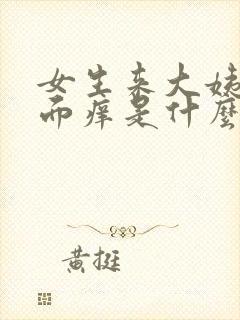 女生来大姨
而痒是什麼
黄挺